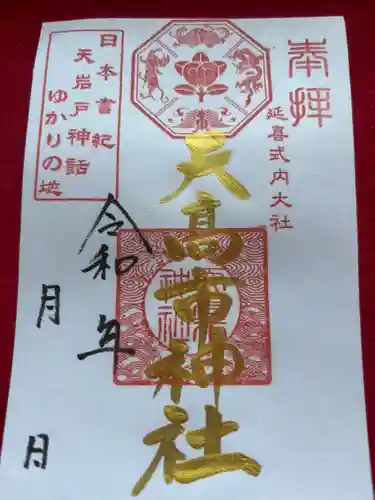 奉拝
延喜式内大社
天高市神社
令和 年
月 日
日本書紀
天岩戸神話
ゆかりの地